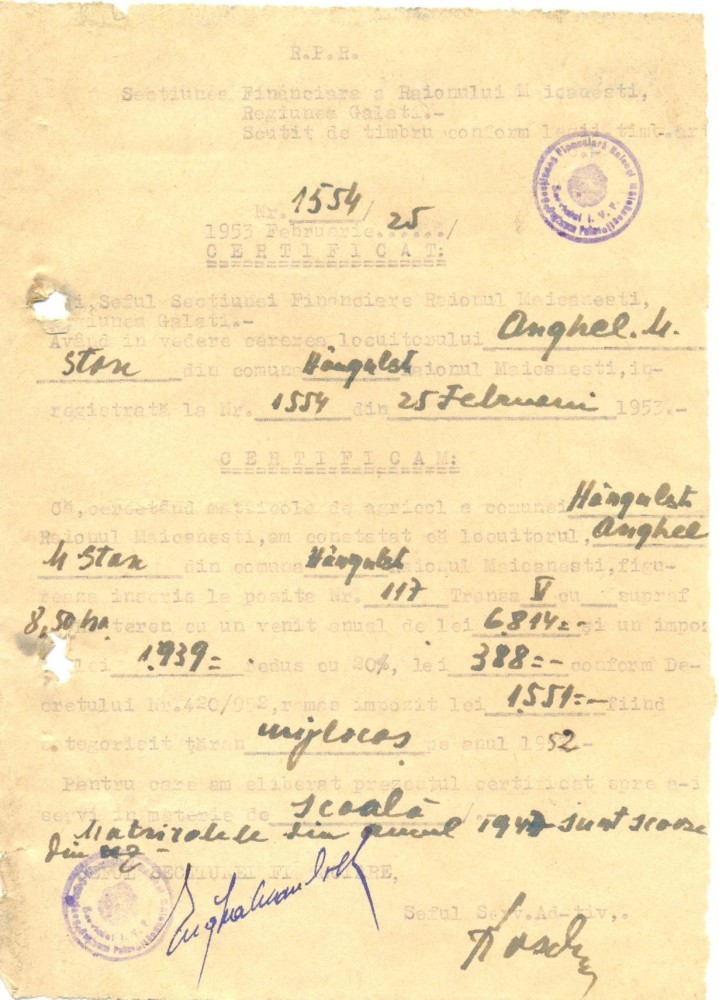 R.P.R.
Sectiunea Financiara a Raionului Maicanesti,
Regiunea Galati.-
Scutit de timbru conform legii
Nr. 1554/
1953 Februarie 25 /
CERTIFICAT:
Seful Sectiunei Financiare Raionul Maicanesti,
Galati.-
Având in vedere cererea locuitorului Anghel. M.
Stan din comuna Hângulest Raionul Maicanesti, in-
registrată la Nr. 1554 din 25 Februarii 1953.-
CERTIFICAM:
Că, cercetând matricole de agricol a comunei Hângulesti
Raionul Maicanesti, am constatat că locuitorul, Anghel
M Stan din comuna Hângulest Raionul Maicanesti, figu-
reaza inscris la pozite Nr. 117 Transa V cu supraf
8,50 ha teren cu un venit anual de lei 6.814=- și un impoz
lei 1.939= redus cu 20%, lei 388=- conform De-
cretului Nr.420/952, remas impozit lei 1.551=- fiind
categorisit țăran mijlocaș pe anul 1952-
Pentru care am eliberat prezentul certificat spre a-i
servi in materie de școală
Matricolele din anul sunt scoase
din uz -
SECTIUNEI
Seful Serv.Ad-tiv,.